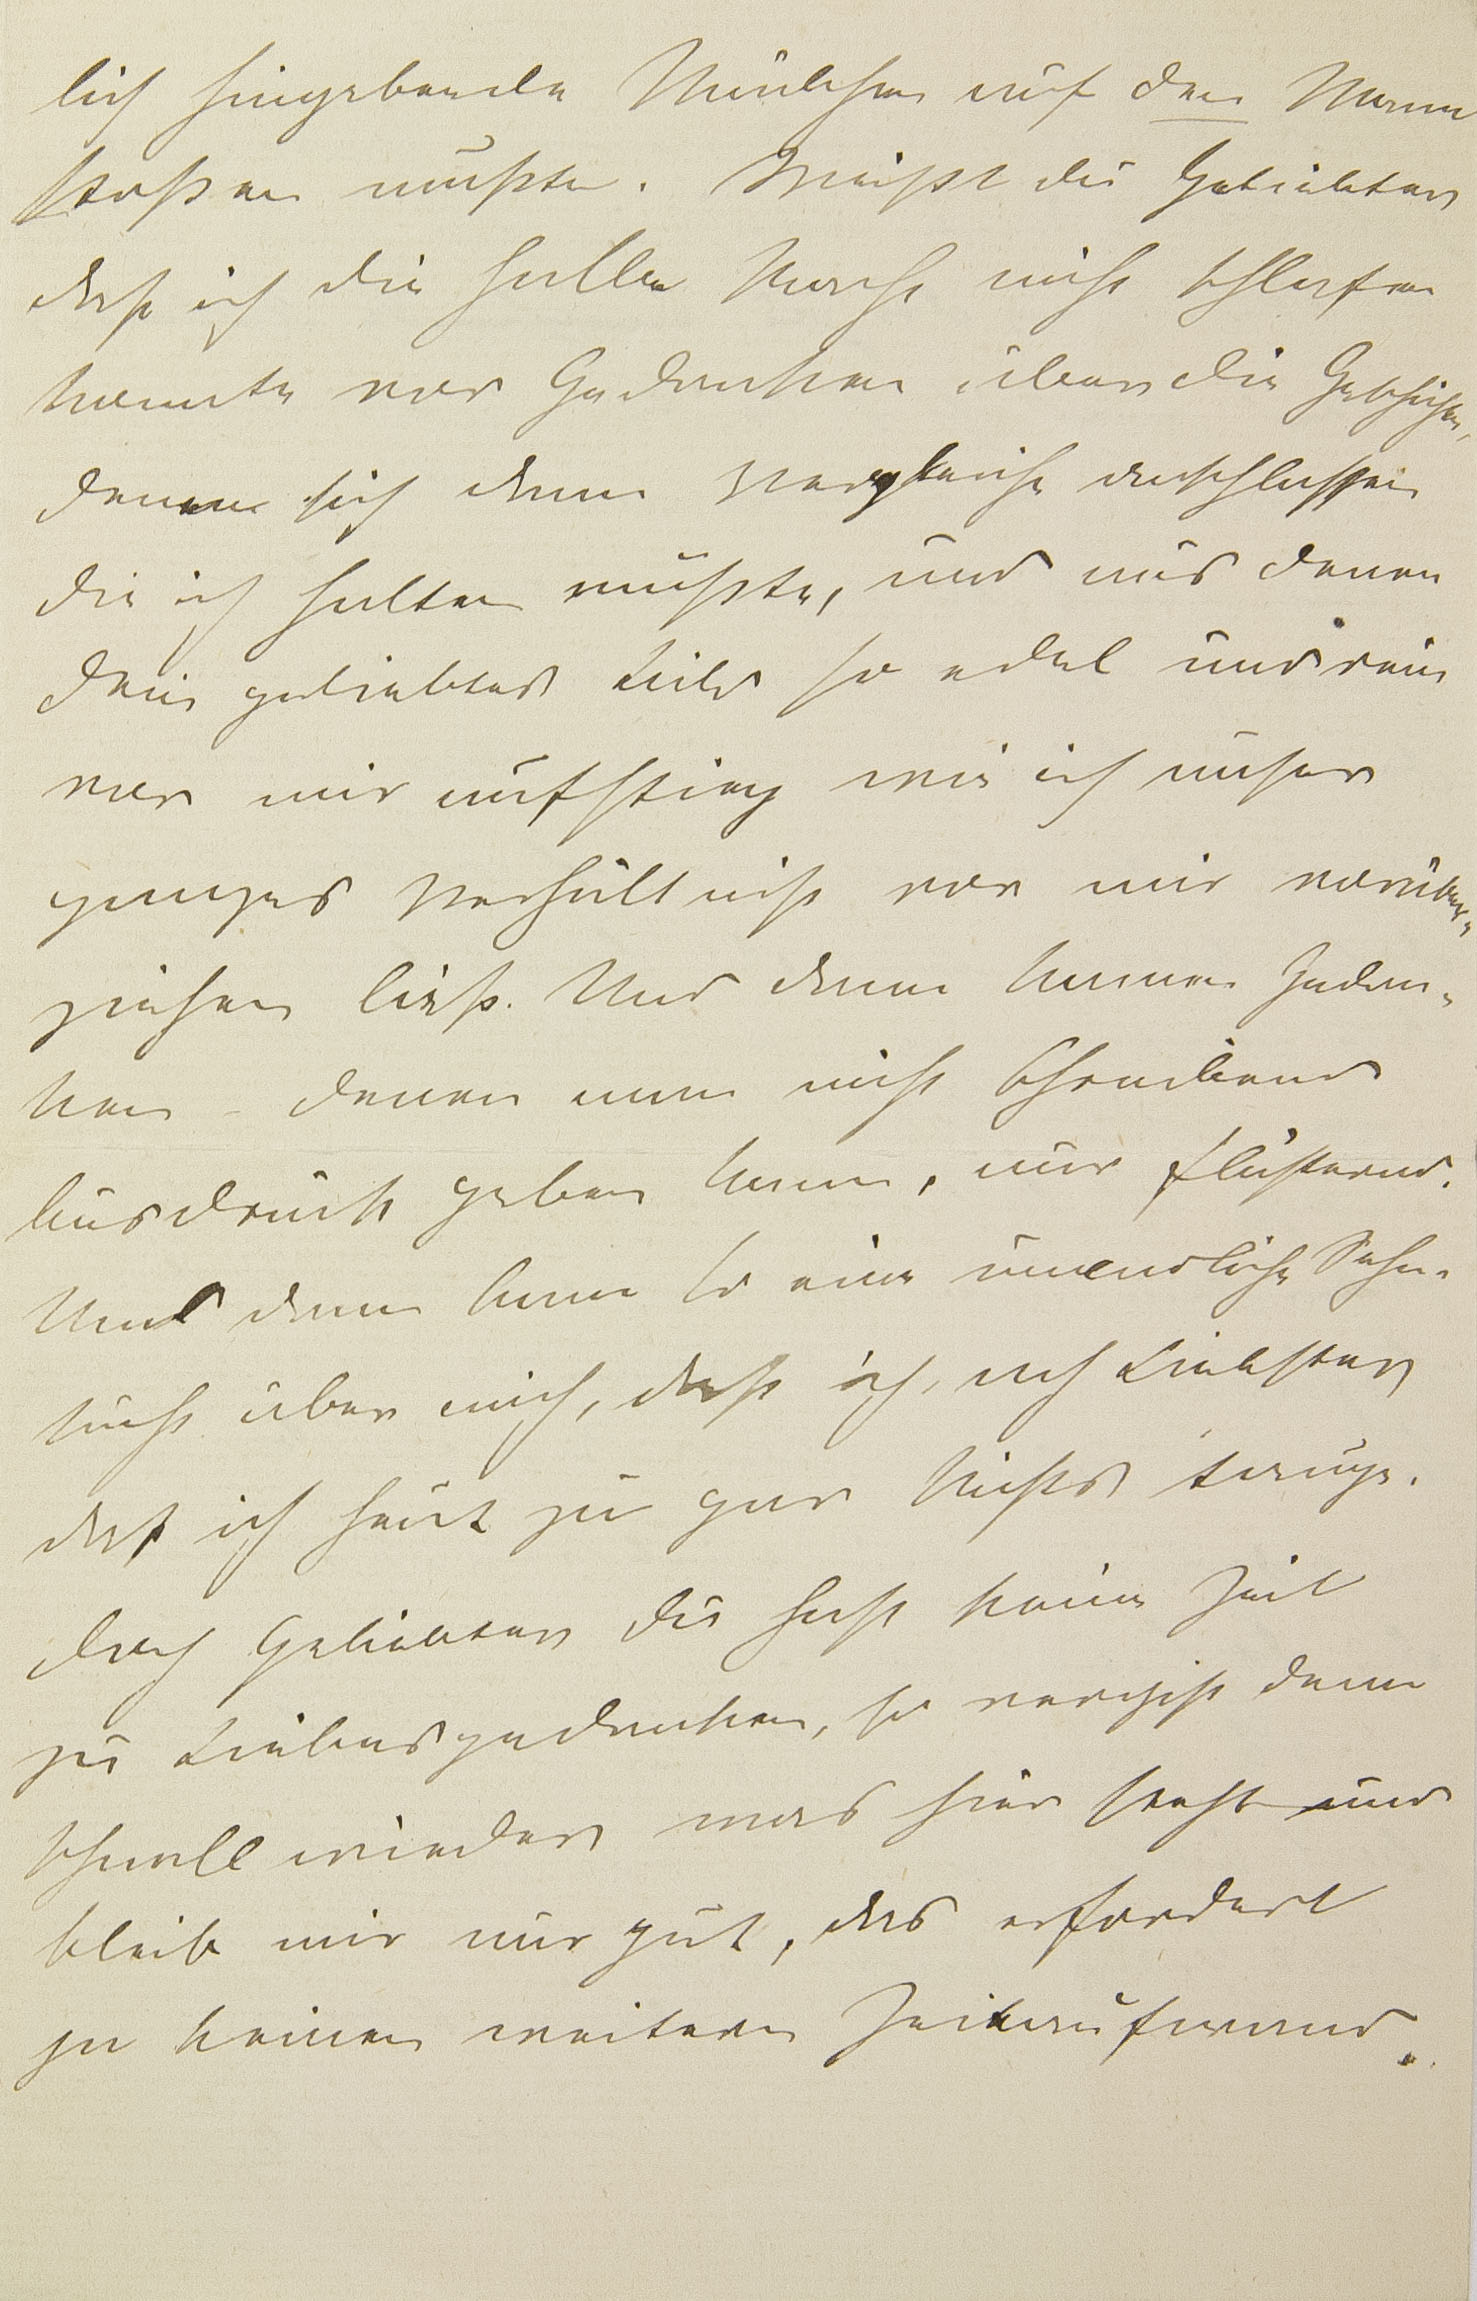 lich hingebende Mädchen auf den Mann
stoßen mußte. Weißt du Geliebter
daß ich die halbe Nacht nicht schlafen
konnte vor Gedanken über die Geschichte,
denen sich dann Vergleiche anschlossen
die ich halten mußte, und aus denen
dein geliebtes Bild so edel und rein
vor mir aufstieg wie ich unser
ganzes Verhältniß vor mir vorüber-
ziehen ließ. Und dann kamen Gedan-
ken – denen man nicht schreibend
Ausdruck geben kann, nur flüsternd.
Und dann kam so eine unendliche Sehn-
sucht über mich, daß ich, ach Liebster
daß ich heut zu gar Nichts tauge.
Doch Geliebter du hast keine Zeit
zu Liebesgedanken, so vergiß denn
schnell wieder was hier steht und
bleib mir nur gut, das erfordert
ja keinen weitern Zeitaufwand.